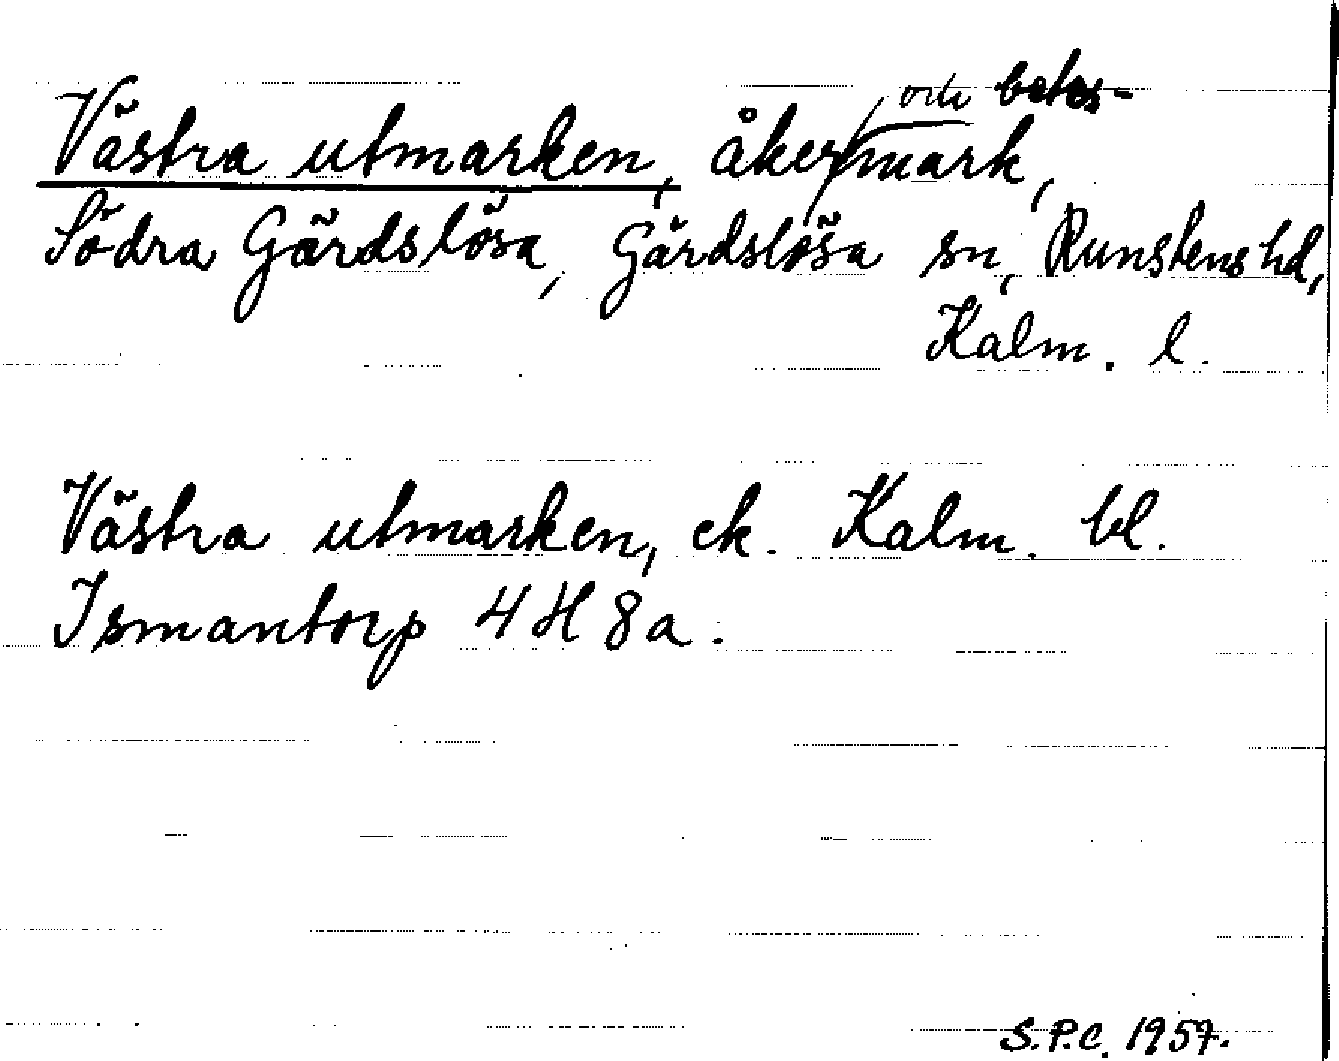 Västra utmarken, åker och betes-mark,
Södra Gärdslösa, Gärdslösa sn, Runstens hd,
Kalm. l.
Västra utmarken, ek. Kalm. bl.
Ismantorp 4 H 8 a.
S.P.C. 1957.